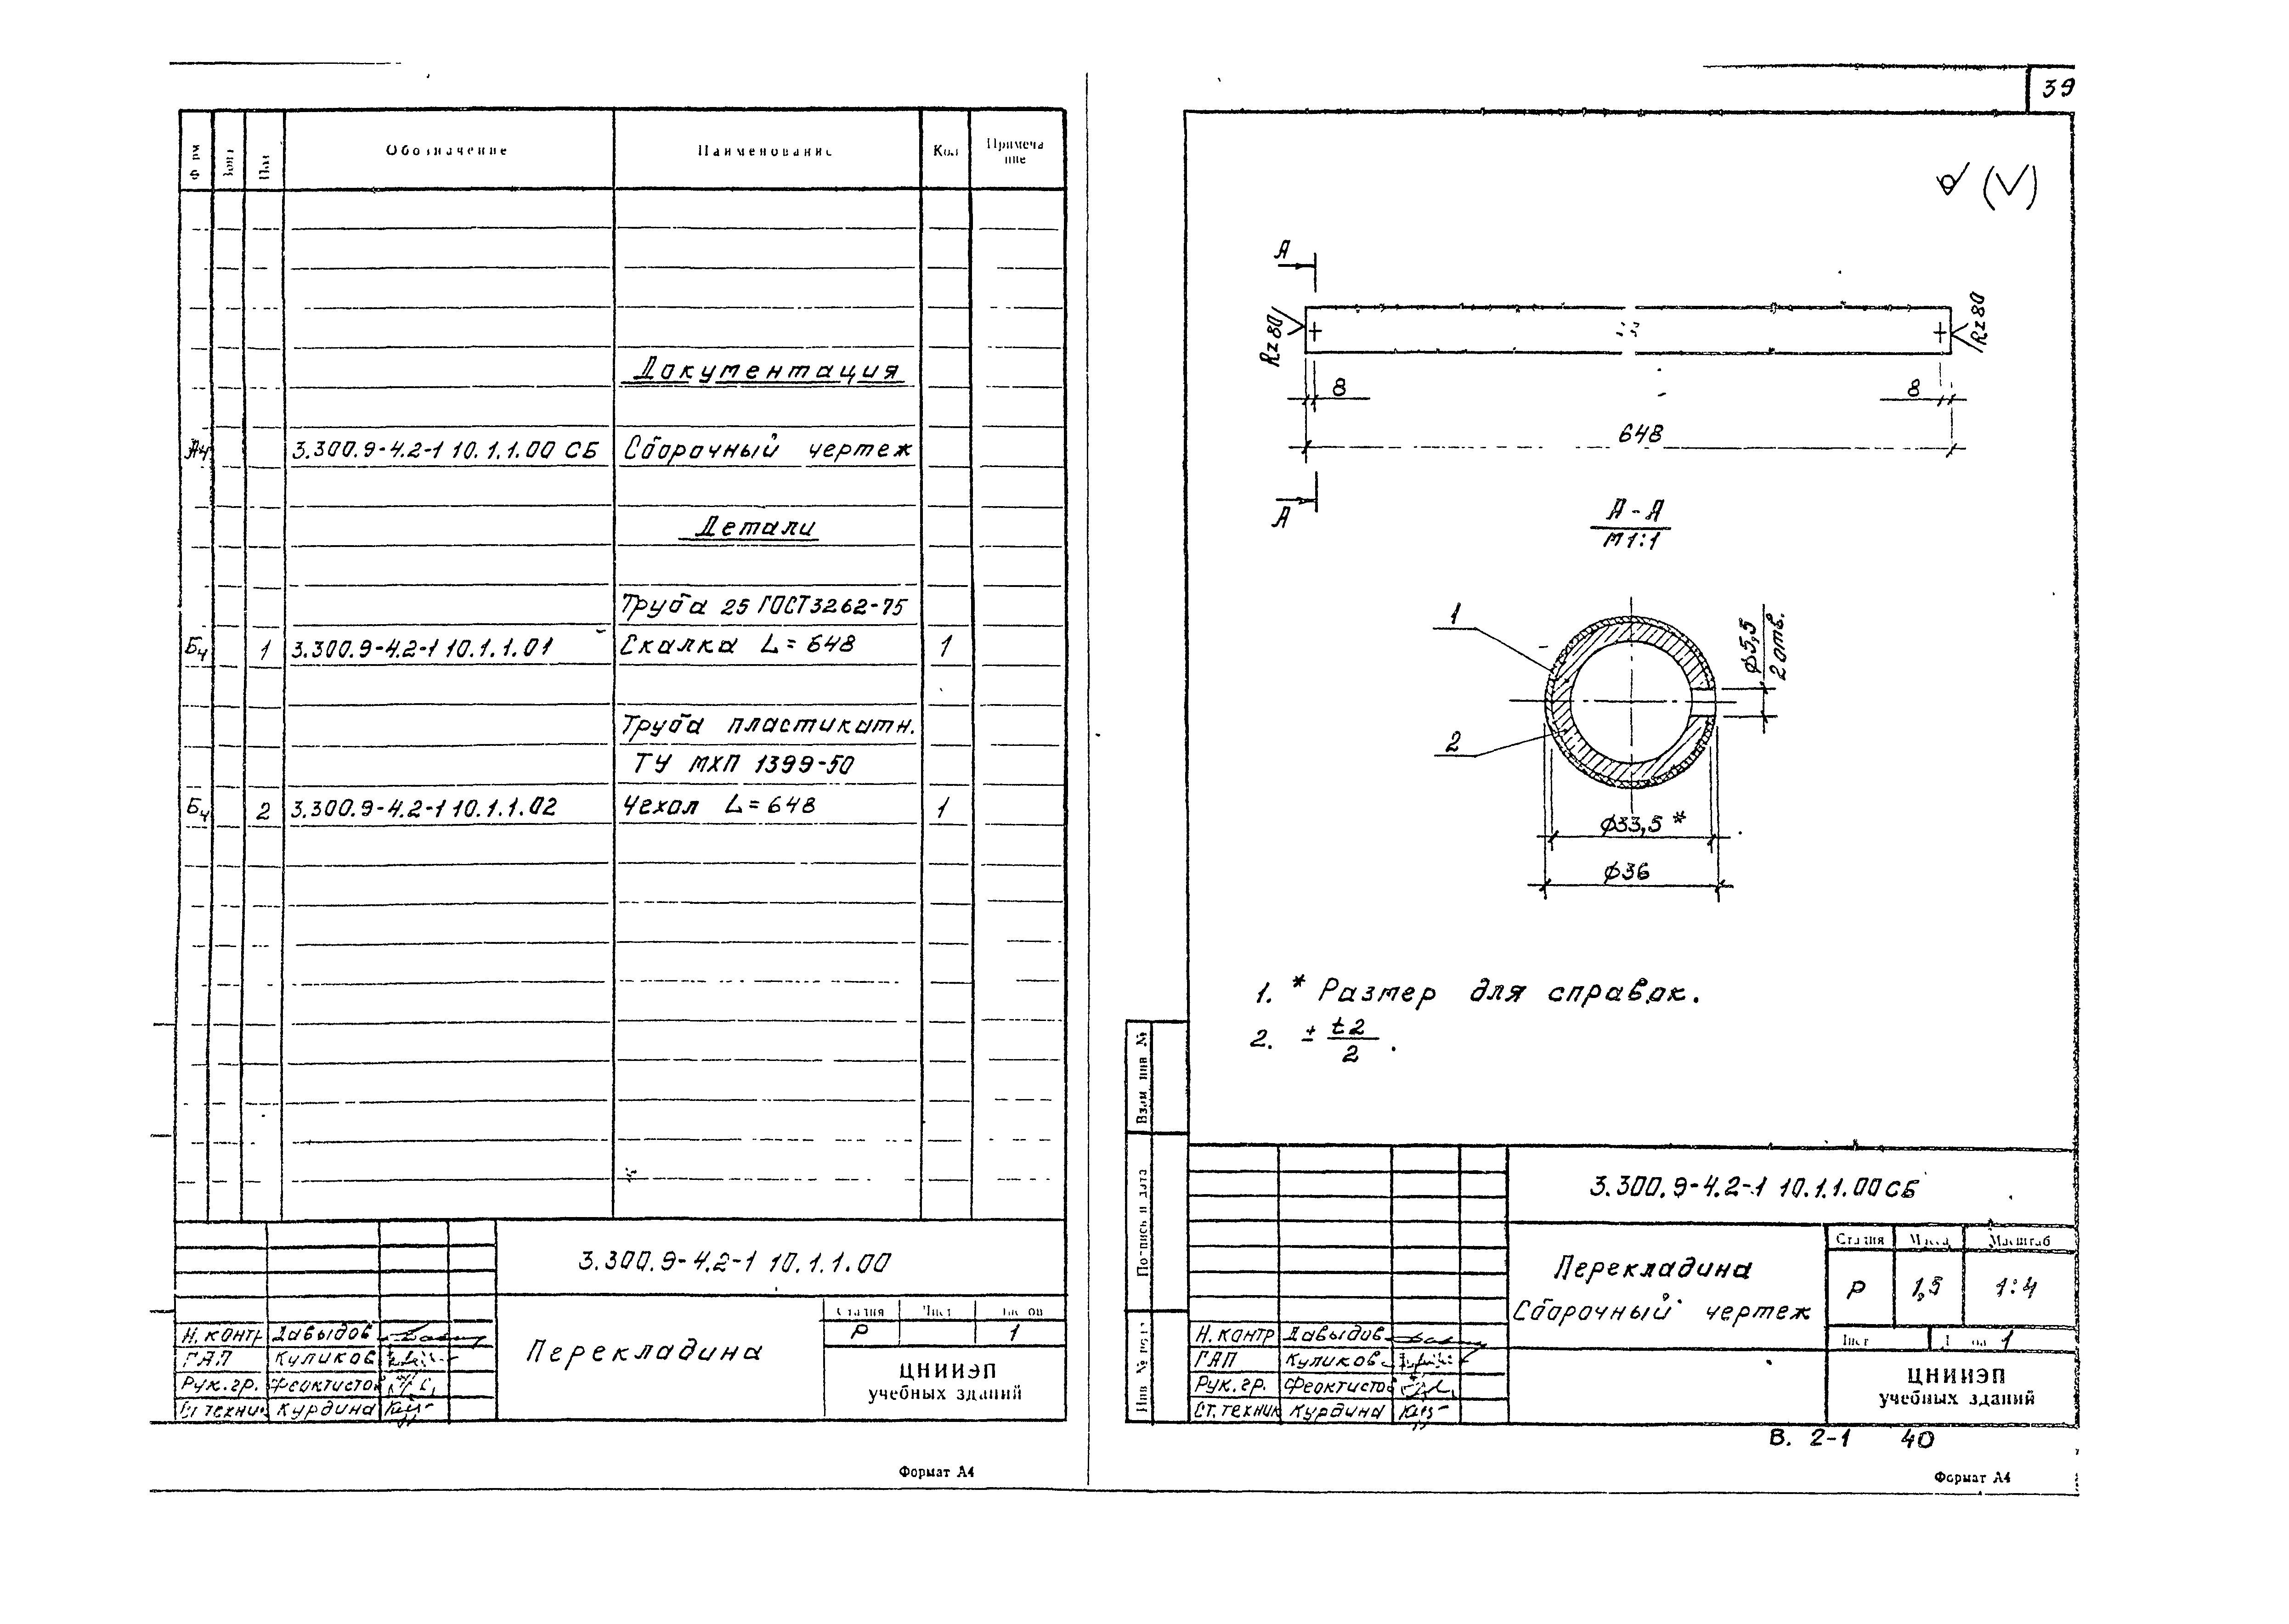 Обозначение Наименование Кол Примеча
ние
Документация
А4 3.300.9-4.2-1 10.1.1.00 СБ Сборочный чертеж
Детали
Труба 25 ГОСТ3262-75
Б4 1 3.300.9-4.2-1 10.1.1.01 Скалка L=648 1
Труба пластикатн.
ТУ МХП 1399-50
Б4 2 3.300.9-4.2-1 10.1.1.02 Чехол L=648 1
3.300.9-4.2-1 10.1.1.00
Стадия Лист
Р 1
Н.контр Давыдов
ГАП Куликов
Рук.гр. Феоктистов
Ст техник Курдина
Перекладина
ЦНИИЭП
учебных зданий
Формат А4
39
А
Rz80
Rz80
8
8
648
А
А-А
М1:1
1
2
ф5,5
2 отв.
ф33,5*
ф36
1. * Размер для справок.
2. ± t2
2 .
Взам инв №
Подпись и дата
Инв № подл
3.300.9-4.2-1 10.1.1.00СБ
Перекладина
Сборочный чертеж
Стадия Масса Масштаб
Р 1,5 1:4
Лист 1
Н.контр Давыдов
ГАП Куликов
Рук.гр. Феоктистов
Ст.техник Курдина
ЦНИИЭП
учебных зданий
В. 2-1 40
Формат А4